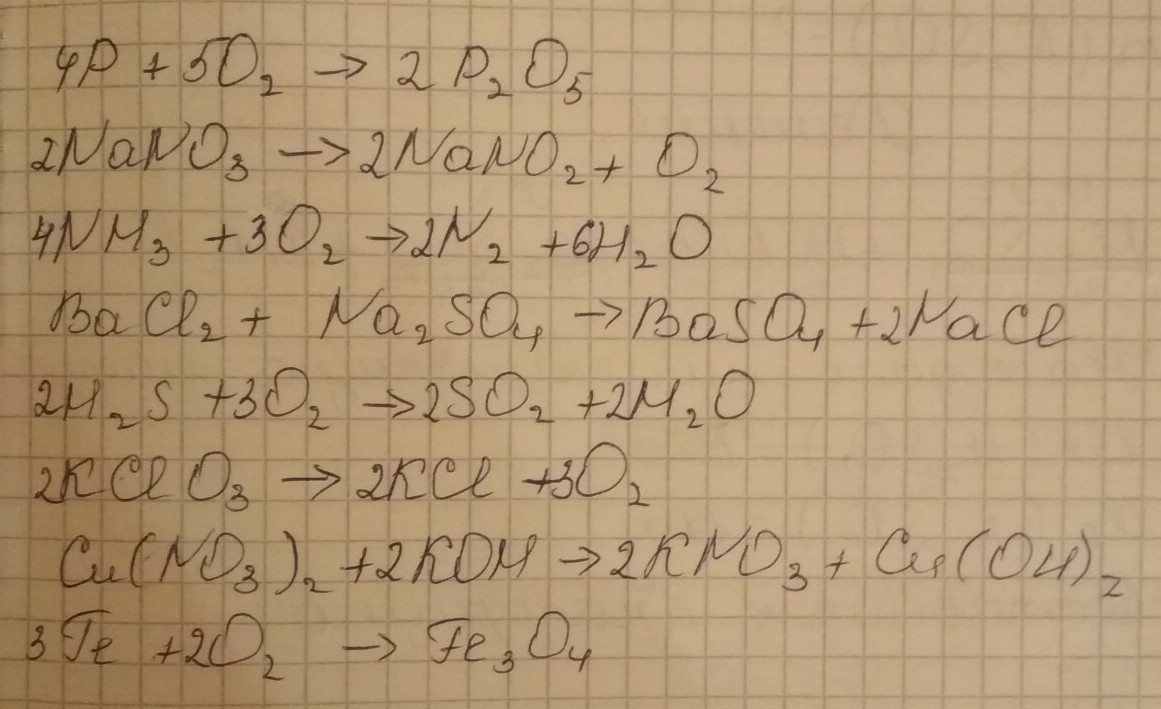 4P + 5O₂ → 2 P₂O₅
2NaNO₃ → 2NaNO₂ + O₂
4NH₃ + 3O₂ → 2N₂ + 6H₂O
BaCl₂ + Na₂SO₄ → BaSO₄ + 2NaCl
2H₂S + 3O₂ → 2SO₂ + 2H₂O
2KClO₃ → 2KCl + 3O₂
Cu(NO₃)₂ + 2KOH → 2KNO₃ + Cu(OH)₂
3Fe + 2O₂ → Fe₃O₄